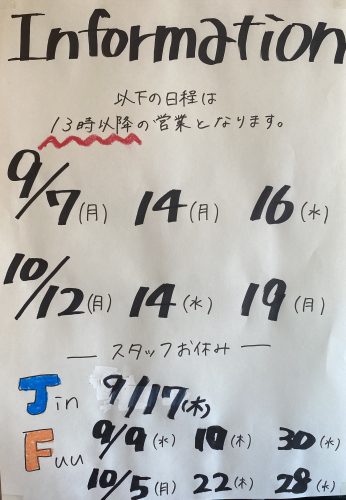 Information
以下の日程は
13時以降の営業となります。
9/7(月) 14(月) 16(水)
10/12(月) 14(水) 19(月)
— スタッフお休み —
Jin 9/17(木)
Fuu 9/9(水) 10(木) 30(水)
10/5(月) 22(木) 28(水)